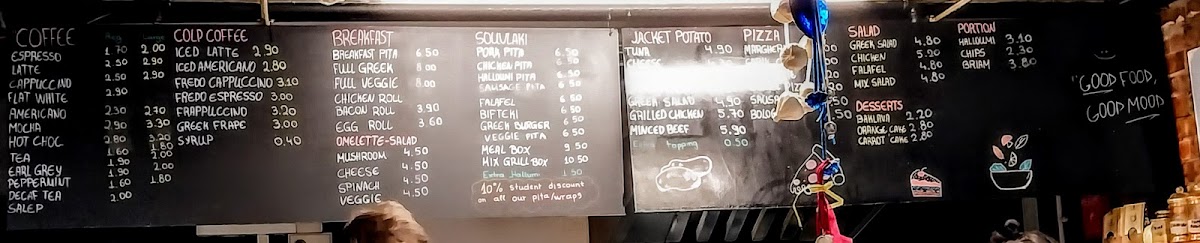 COFFEE
Reg Large
ESPRESSO 1.70 2.00
LATTE 2.50 2.90
CAPPUCCINO 2.50 2.90
FLAT WHITE 2.90
AMERICANO 2.30 2.70
MOCHA 2.90 3.30
HOT CHOC 2.80 3.20
TEA 1.60 1.80
EARL GREY 1.90 2.00
PEPPERMINT 1.90 2.00
DECAF TEA 1.60 1.80
SALEP 2.00
COLD COFFEE
ICED LATTE 2.90
ICED AMERICANO 2.80
FREDO CAPPUCCINO 3.10
FREDO ESPRESSO 3.00
FRAPPUCCINO 3.20
GREEK FRAPE 3.00
SYRUP 0.40
BREAKFAST
BREAKFAST PITA 6.50
FULL GREEK 8.00
FULL VEGGIE 8.00
CHICKEN ROLL
BACON ROLL 3.90
EGG ROLL 3.60
OMELETTE-SALAD
MUSHROOM 4.50
CHEESE 4.50
SPINACH 4.50
VEGGIE 4.50
SOUVLAKI
PORK PITA 6.50
CHICKEN PITA 6.50
HALLOUMI PITA 6.50
SAUSAGE PITA 6.50
FALAFEL 6.50
BIFTEKI 6.50
GREEK BURGER 6.50
VEGGIE PITA 6.50
MEAL BOX 9.50
MIX GRILL BOX 10.50
Extra Halloumi 1.50
10% student discount
on all our pita/wraps
JACKET POTATO
TUNA 4.90
CHEESE
GREEK SALAD 4.90
GRILLED CHICKEN 5.70
MINCED BEEF 5.90
Extra topping 0.50
PIZZA
SALAD
GREEK SALAD 4.80
CHICKEN 5.20
FALAFEL 4.80
MIX SALAD 4.80
DESSERTS
BAKLAVA 2.20
ORANGE CAKE 2.80
CARROT CAKE 2.80
PORTION
HALLOUMI 3.10
CHIPS 2.30
BRIAM 3.80
"GOOD FOOD,
GOOD MOOD